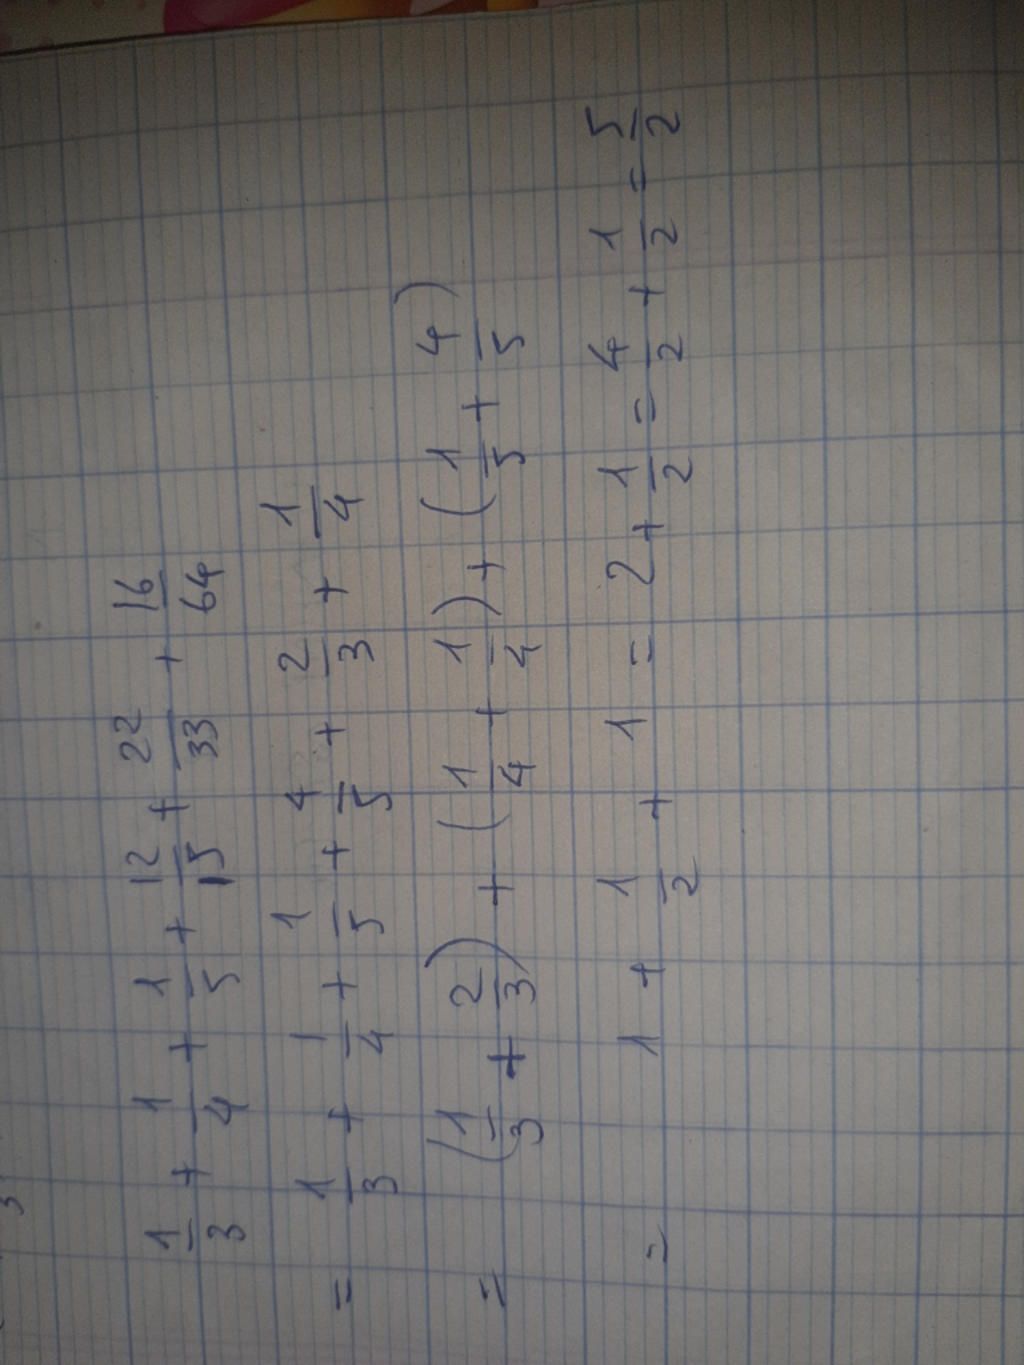 1/3 + 1/4 + 1/5 + 12/15 + 22/33 + 16/64
= 1/3 + 1/4 + 1/5 + 4/5 + 2/3 + 1/4
= (1/3 + 2/3) + (1/4 + 1/4) + (1/5 + 4/5)
= 1 + 1/2 + 1 = 2 + 1/2 = 4/2 + 1/2 = 5/2